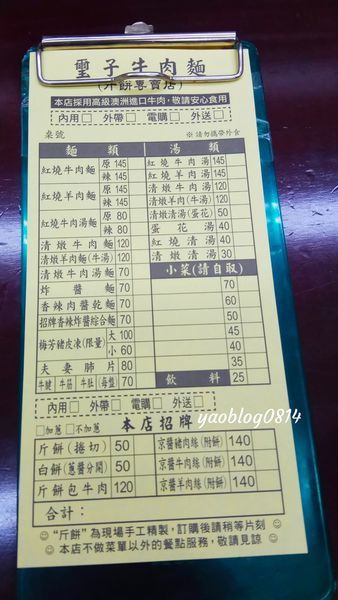 璽子牛肉麵
(斤餅專賣店)
本店採用高級澳洲進口牛肉,敬請安心食用
內用□ 外帶□ 電購□ 外送□
桌號 ※請勿攜帶外食
麵類
紅燒牛肉麵 原 145
辣 145
紅燒羊肉麵 原 145
辣 145
紅燒牛肉湯麵 原 80
辣 80
清燉牛肉麵 120
清燉羊肉麵(牛湯) 120
清燉牛肉湯麵 70
炸醬麵 70
香辣肉醬乾麵 70
招牌香辣炸醬綜合麵 70
梅芳豬皮凍(限量) 大 100
小 60
夫妻肺片 80
牛腱 牛筋 牛肚(每盤) 70
湯類
紅燒牛肉湯 145
紅燒羊肉湯 145
清燉牛肉湯 120
清燉羊肉(牛湯) 120
清燉清湯(蛋花) 50
蛋花湯 40
紅燒清湯 40
清燉清湯 30
小菜(請自取)
70
60
50
45
40
35
飲料 25
內用□ 外帶□ 電購□ 外送□
□加蔥 □不加蔥 本店招牌
斤餅(捲切) 50
白餅(蔥醬分開) 50
斤餅包牛肉 120
京醬豬肉絲(附餅) 140
京醬牛肉絲(附餅) 140
京醬羊肉絲(附餅) 140
合計:
"斤餅"為現場手工精製,訂購後請稍等片刻
本店不做菜單以外的餐點服務,敬請見諒
yaoblog0814